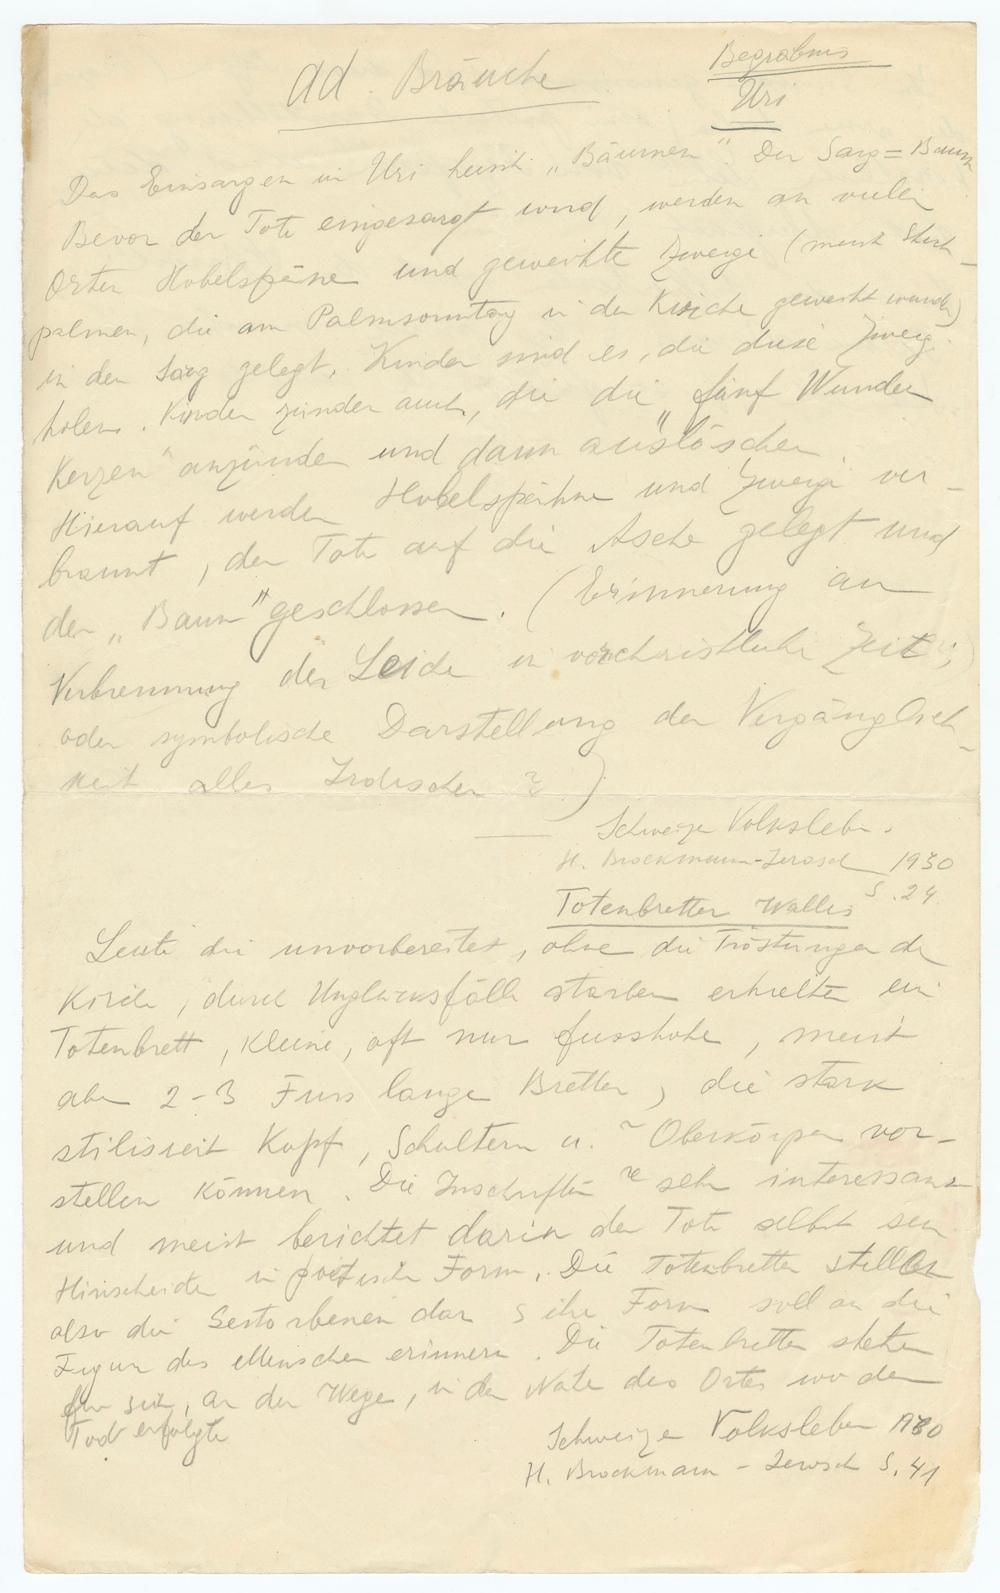 ad Bräuche
Begräbnis
Uri
Das Einsargen in Uri heisst „Bäumen". Der Sarg = Baum
Bevor der Tote eingesargt wird, werden an vielen
Orten Hobelspäne und geweihte Zweige (meist Stech-
palmen, die am Palmsonntag in der Kirche geweiht wurden)
in den Sarg gelegt. Kinder sind es, die diese Zweige
holen. Kinder zünden auch, die die „fünf Wunden
Kerzen" anzünden und dann auslöschen.
Hierauf werden Hobelspähne und Zweige ver-
brannt, der Tote auf die Asche gelegt und
der „Baum" geschlossen. (Erinnerung an
Verbrennung der Leiche in vorchristliche Zeit;
oder symbolische Darstellung der Vergänglich-
keit alles Irdischen?)
Schweizer Volksleben.
H. Brockmann-Jerosch 1930
S. 24
Totenbretter Wallis
Leute die unvorbereitet, ohne die Tröstungen der
Kirche, durch Unglücksfälle starben erhielten ein
Totenbrett, kleine, oft nur fusshohe, meist
aber 2-3 Fuss lange Bretter, die stark
stilisiert Kopf, Schultern u. Oberkörper vor-
stellen können. Die Inschriften sehr interessant
und meist berichtet darin der Tote selbst sein
Hinscheiden in poetische Form. Die Totenbretter stellen
also die Gestorbenen dar & ihre Form soll an die
Figur des Menschen erinnern. Die Totenbretter stehen
für sich, an den Wege, in der Nähe des Ortes wo der
Tod erfolgte
Schweizer Volksleben 1930
H. Brockmann-Jerosch S. 41